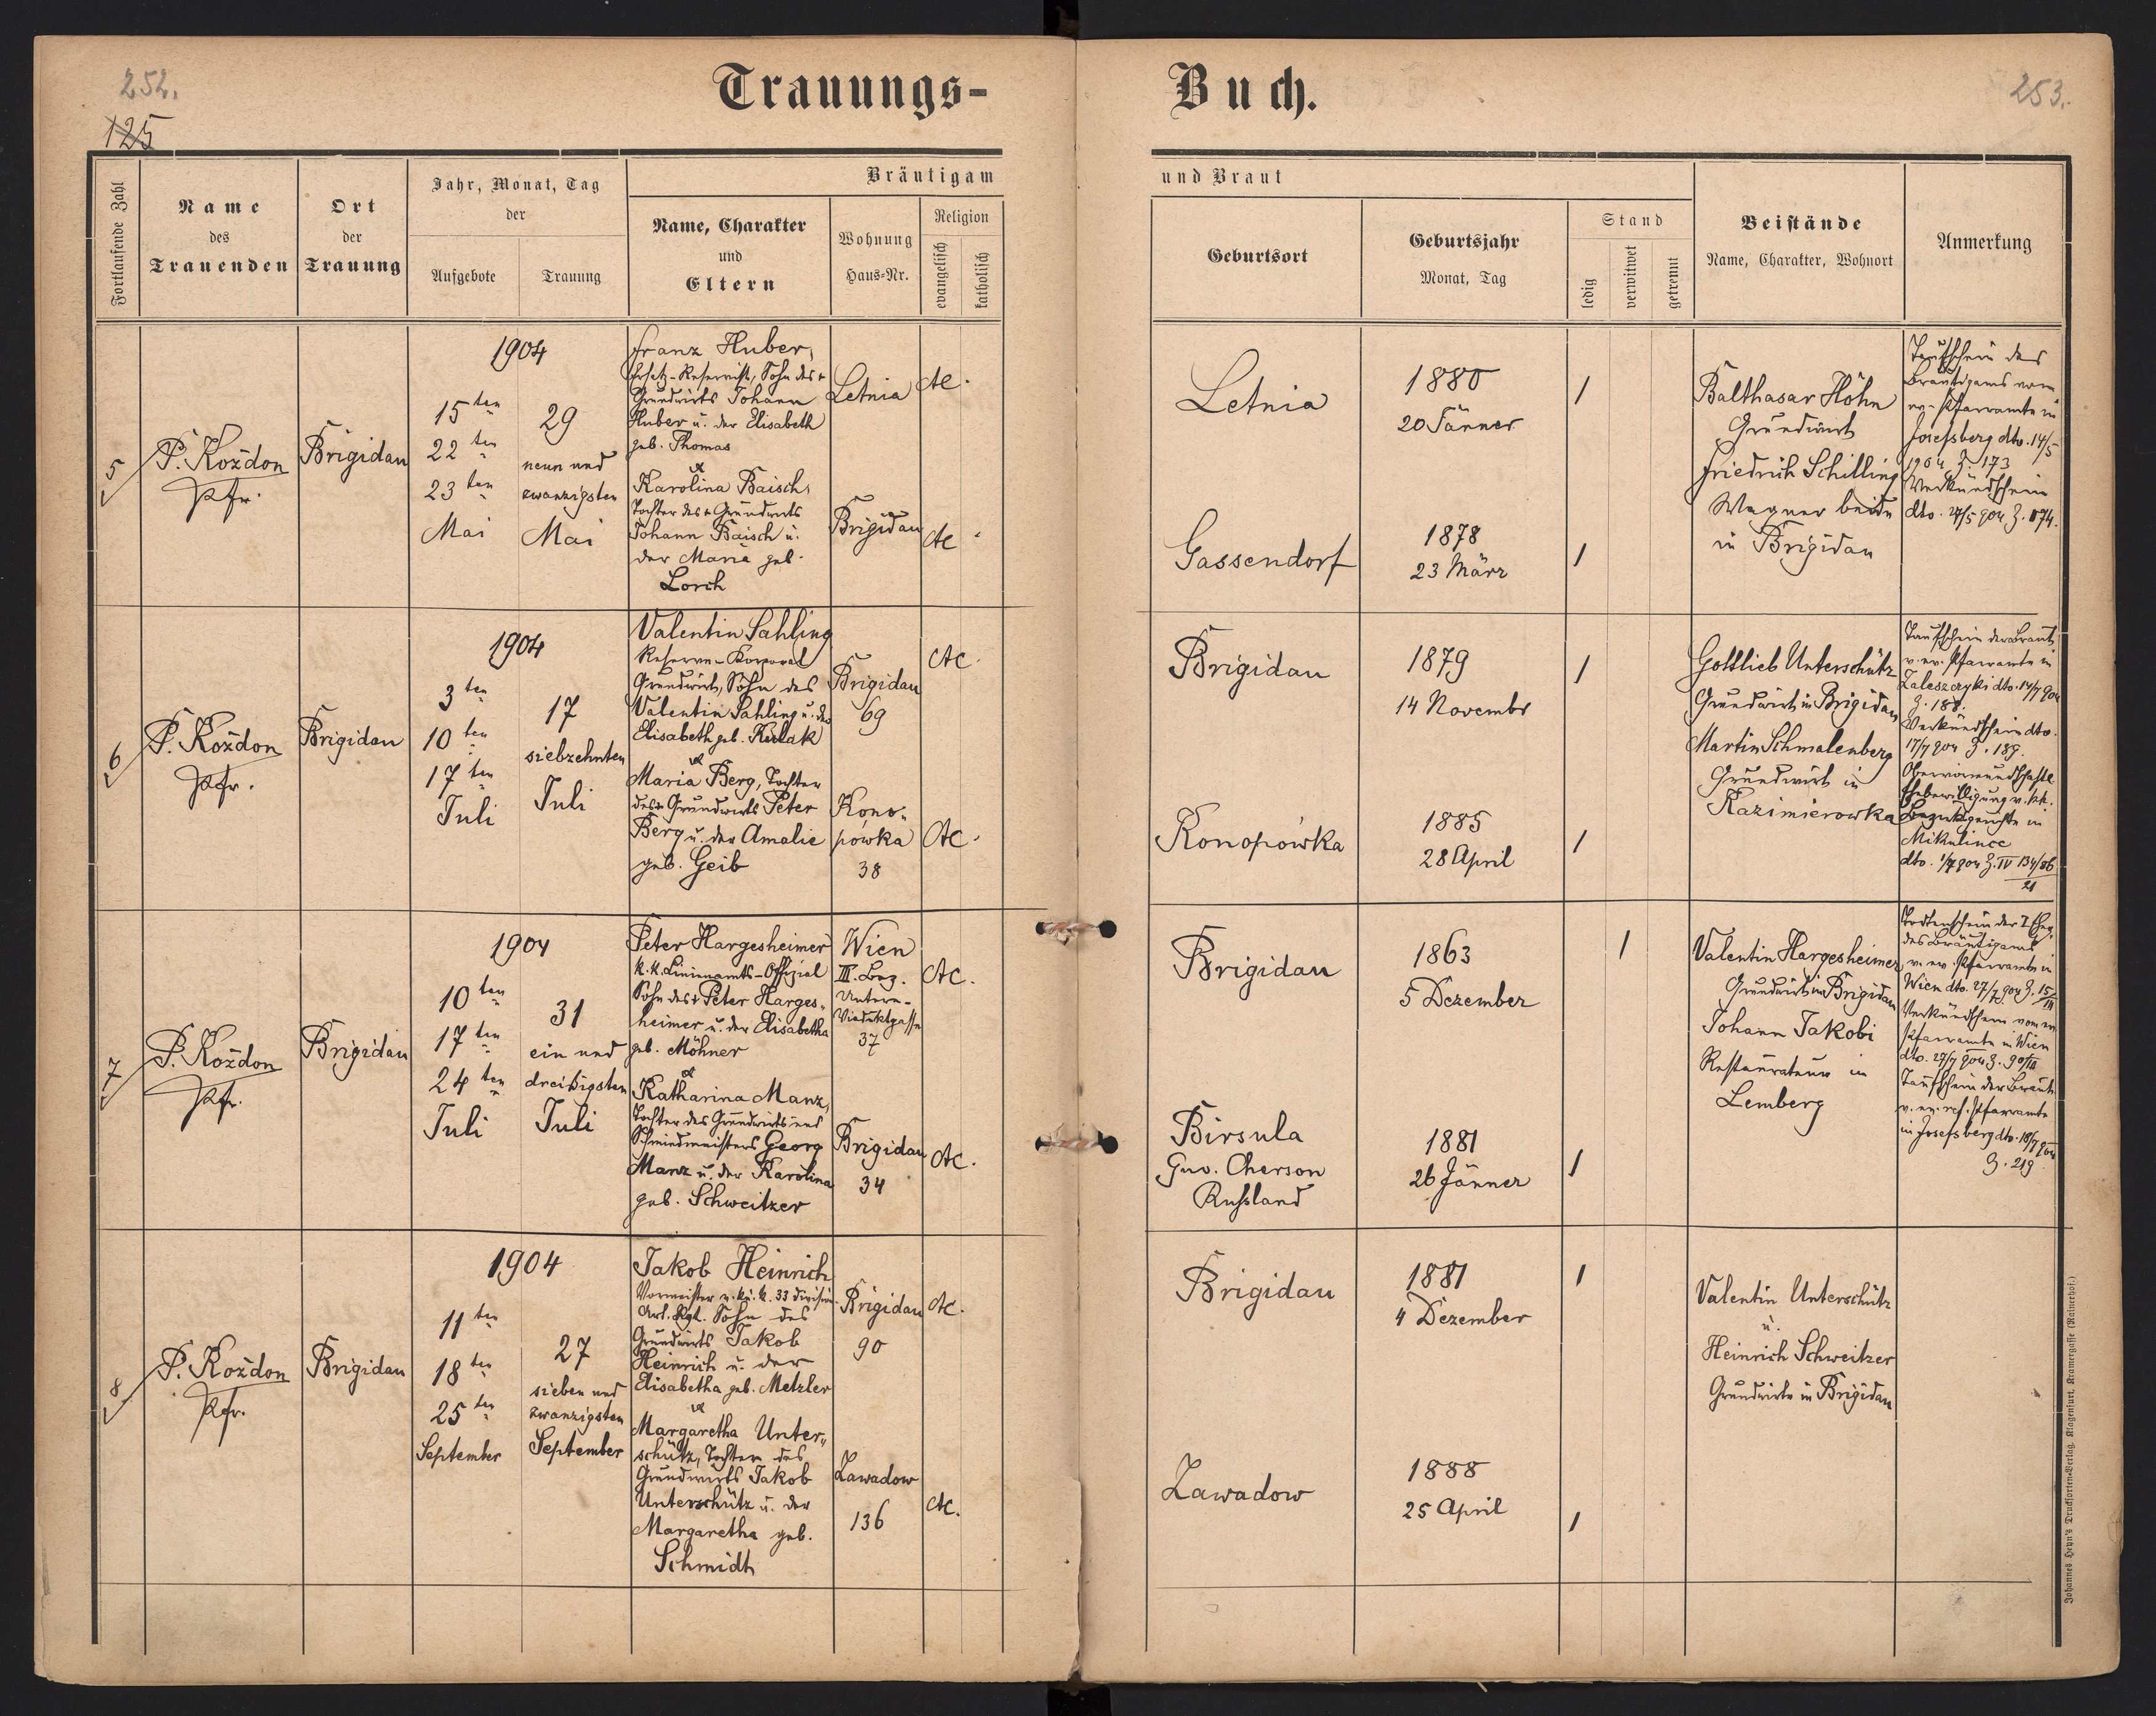 252.
125
Trauungs-
Fortlaufende Zahl
Name
des
Trauenden
Ort
der
Trauung
Jahr, Monat, Tag
der
Aufgebote
Trauung
Bräutigam
Name, Charakter
und
Eltern
Wohnung
Haus-Nr.
Religion
evangelisch
katholisch
5
P. Kożdon
Pfr.
Brigidau
1904
15ten
22ten
23ten
Mai
29
neun und
zwanzigsten
Mai
Franz Huber,
Ersatz-Reservist, Sohn des +
Grundwirts Johann
Huber u. der Elisabeth
geb. Thomas
&
Karolina Baisch,
Tochter des + Grundwirts
Johann Baisch u.
der Maria geb.
Lorch
Letnia
AC.
Brigidau
AC
6
P. Kożdon
Pfr.
Brigidau
1904
3ten
10ten
17ten
Juli
17
siebzehnten
Juli
Valentin Sahling
Reserve-Korporal
Grundwirt, Sohn des
Valentin Sahling u. der
Elisabeth geb. Kulak
&
Maria Berg, Tochter
des + Grundwirts Peter
Berg u. der Amalie
geb. Geib
Brigidau
69
AC.
Kono-
pówka
38
AC.
7
P. Kożdon
Pfr.
Brigidau
1904
10ten
17ten
24ten
Juli
31
ein und
dreißigsten
Juli
Peter Hargesheimer
k. k. Linienamts-Offizial
Sohn des + Peter Harges-
heimer u. der Elisabetha
geb. Möhner
&
Katharina Manz,
Tochter des Grundwirts und
Schmiedmeisters Georg
Manz u. der Karolina
geb. Schweitzer
Wien
III. Bez.
Untere-
Viaduktgasse
37
AC.
Brigidau
34
AC.
8
P. Kożdon
Pfr.
Brigidau
1904
11ten
18ten
25ten
September
27
sieben und
zwanzigsten
September
Jakob Heinrich
Vormeister v. k. u. k. 33 Division
Art. Rgt. Sohn des
Grundwirts Jakob
Heinrich u. der
Elisabetha geb. Metzler
&
Margaretha Unter-
schütz, Tochter des
Grundwirts Jakob
Unterschütz u. der
Margaretha geb.
Schmidt
Brigidau
90
AC.
Zawadow
136
AC.
Buch.
253.
und Braut
Geburtsort
Geburtsjahr
Monat, Tag
Stand
ledig
verwitwet
getrennt
Beistände
Name, Charakter, Wohnort
Anmerkung
Letnia
1880
20 Jänner
1
Gassendorf
1878
23 März
1
Balthasar Höhn
Grundwirt
Friedrich Schilling
Wagner beide
in Brigidau
Taufschein des
Bräutigams vom
ev. Pfarramte in
Josefsberg dto. 14/5
1904 Z. 173
Verkündschein
dto. 27/5 904 Z. 174.
Brigidau
1879
14 Novembr
1
Konopówka
1885
28 April
1
Gottlieb Unterschütz
Grundwirt in Brigidau
Martin Schmalenberg
Grundwirt in
Kazimierowka
Taufschein der Braut
v. ev. Pfarramte in
Zaleszczyki dto. 14/7 904
Z. 188.
Verkündschein dto.
17/7 904 Z. 189.
Obervormundschaftl.
Ehebewilligung v. kk.
Bezirksgerichte in
Mikulince
dto. 1/7 904 Z. IV 134/86
21
Brigidau
1863
5 Dezember
1
Birsula
Guv. Cherson
Rußland
1881
26 Jänner
1
Valentin Hargesheimer
Grundwirt in Brigidau
Johann Jakobi
Restaurateur in
Lemberg
Todtenschein der I Ehe
des Bräutigams
v. ev. Pfarramte in
Wien dto. 27/7 904 Z. 15/III
Verkündschein vom ev
Pfarramte in Wien
dto. 29/7 904 Z. 90/III
Taufschein der Braut
v. ev. ref. Pfarramte
in Josefsberg dto. 18/7 904
Z. 219
Brigidau
1881
4 Dezember
1
Zawadow
1888
25 April
1
Valentin Unterschütz
u.
Heinrich Schweitzer
Grundwirte in Brigidau
Johannes Heyn's Drucksorten-Verlag, Klagenfurt, Kramergasse (Rainerhof.)